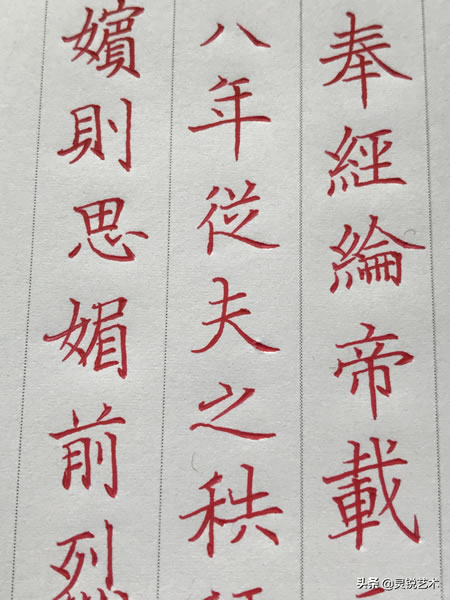 奉經綸帝載
八年従夫之秩
嬪則思媚前烈
头条 @灵锐艺术